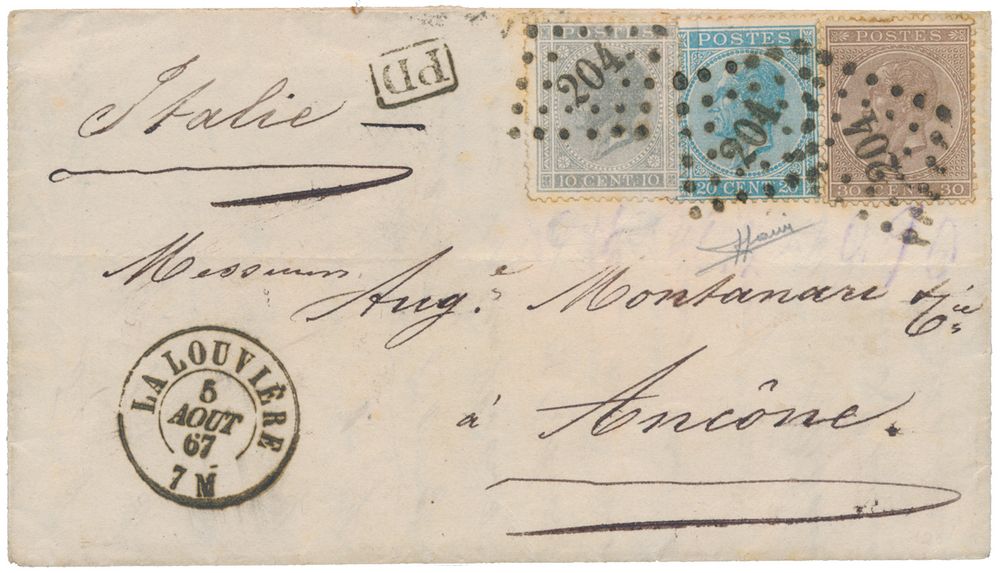 POSTES POSTES POSTES
204 204 204
10 CENT. 10 20 CENT 20 30 CENT 30
PD
Italie
Messieurs
Augᵉ Montanari & Cⁱᵉ
à Ancône.
LA LOUVIÈRE
5
AOUT
67
7 M